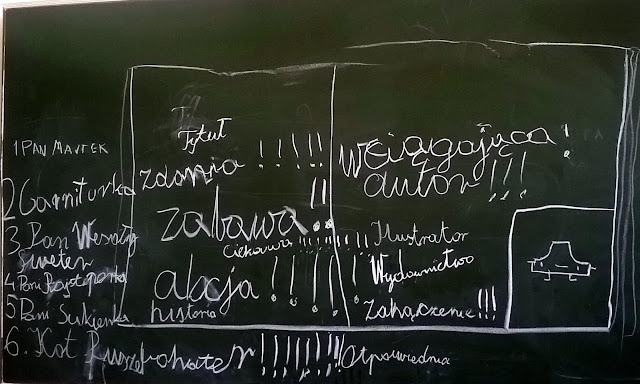 1 PAN
2 Garniturka
3 Pan Wesoły
Sweter
4 Pani
5 Pani Sukienka
6. Kot
Tytuł
zdania !!!!!
zabawa !!
Ciekawa !!!!!!!!!
akcja !!!!
historia
bohater !!!!!!!
Wciągająca!
autor!!!
Ilustrator
Wydawnictwo
Zakączenie!!!
Otpowiednia